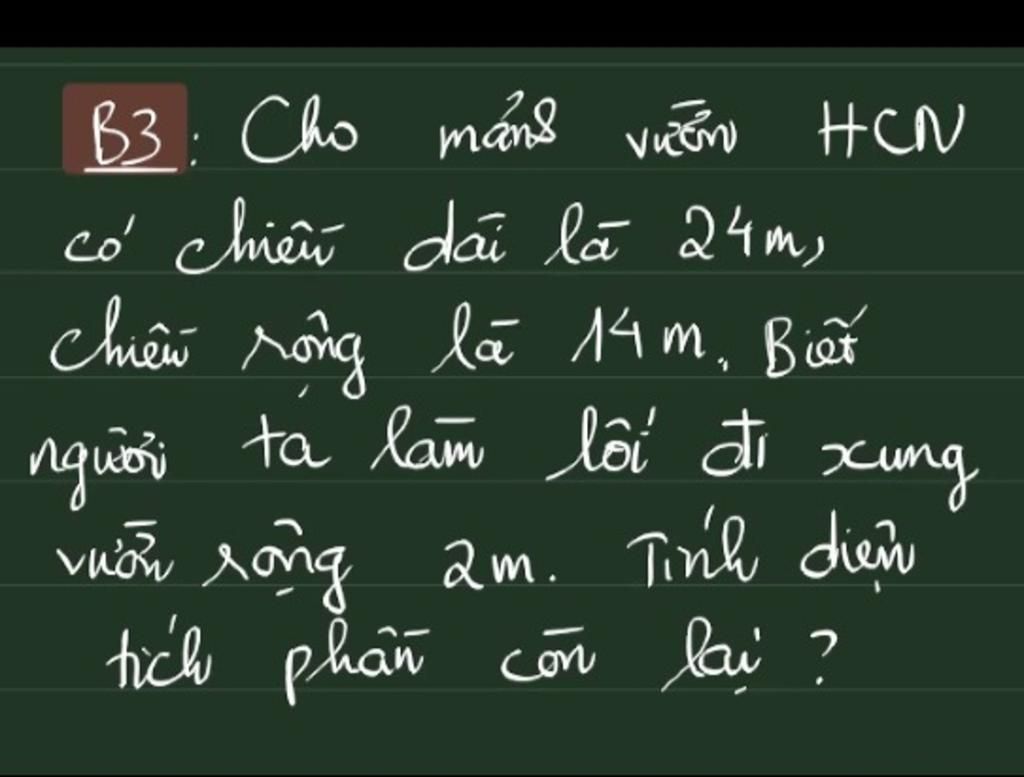 B3: Cho mảng vườn HCN
có chiều dài là 24m,
chiều rộng là 14m. Biết
người ta làm lối đi xung
vườn rộng 2m. Tính diện
tích phần còn lại?